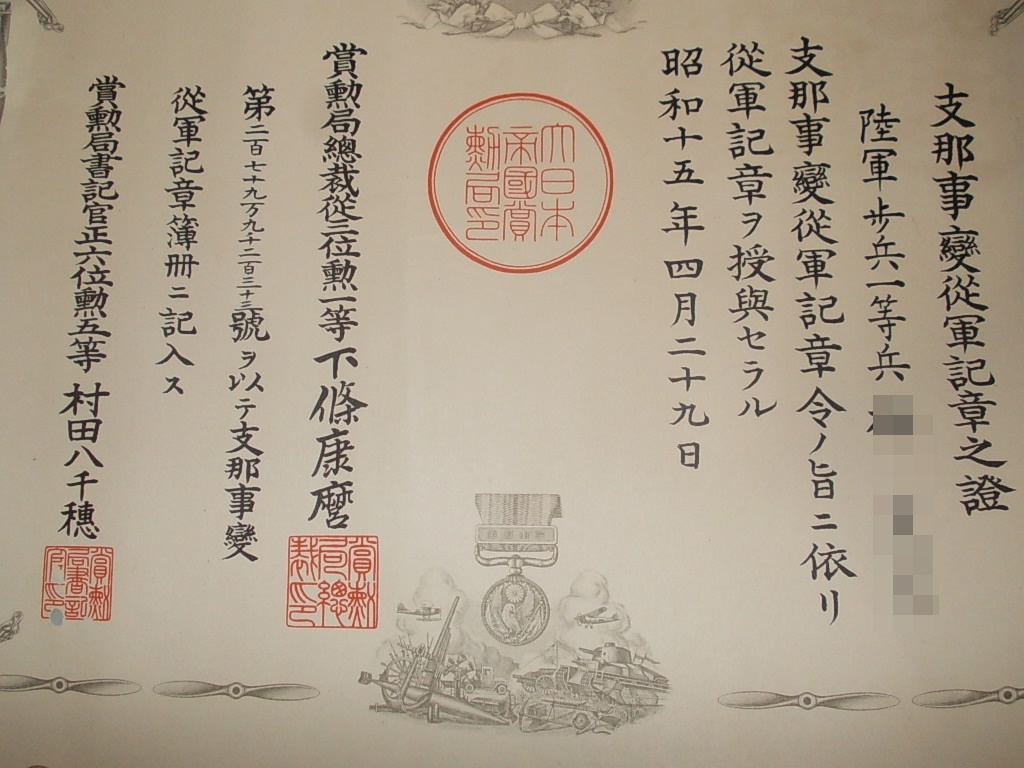 支那事變從軍記章之證
陸軍歩兵一等兵
支那事變從軍記章令ノ旨ニ依リ
從軍記章ヲ授與セラル
昭和十五年四月二十九日
大日本
帝國賞
勲局印
賞勲局總裁從三位勲一等下條康麿
賞勲
局總
裁印
第二百七十九万九十二百三十三號ヲ以テ支那事變
從軍記章簿冊ニ記入ス
賞勲局書記官正六位勲五等村田八千穗
賞勲
局書記
官印